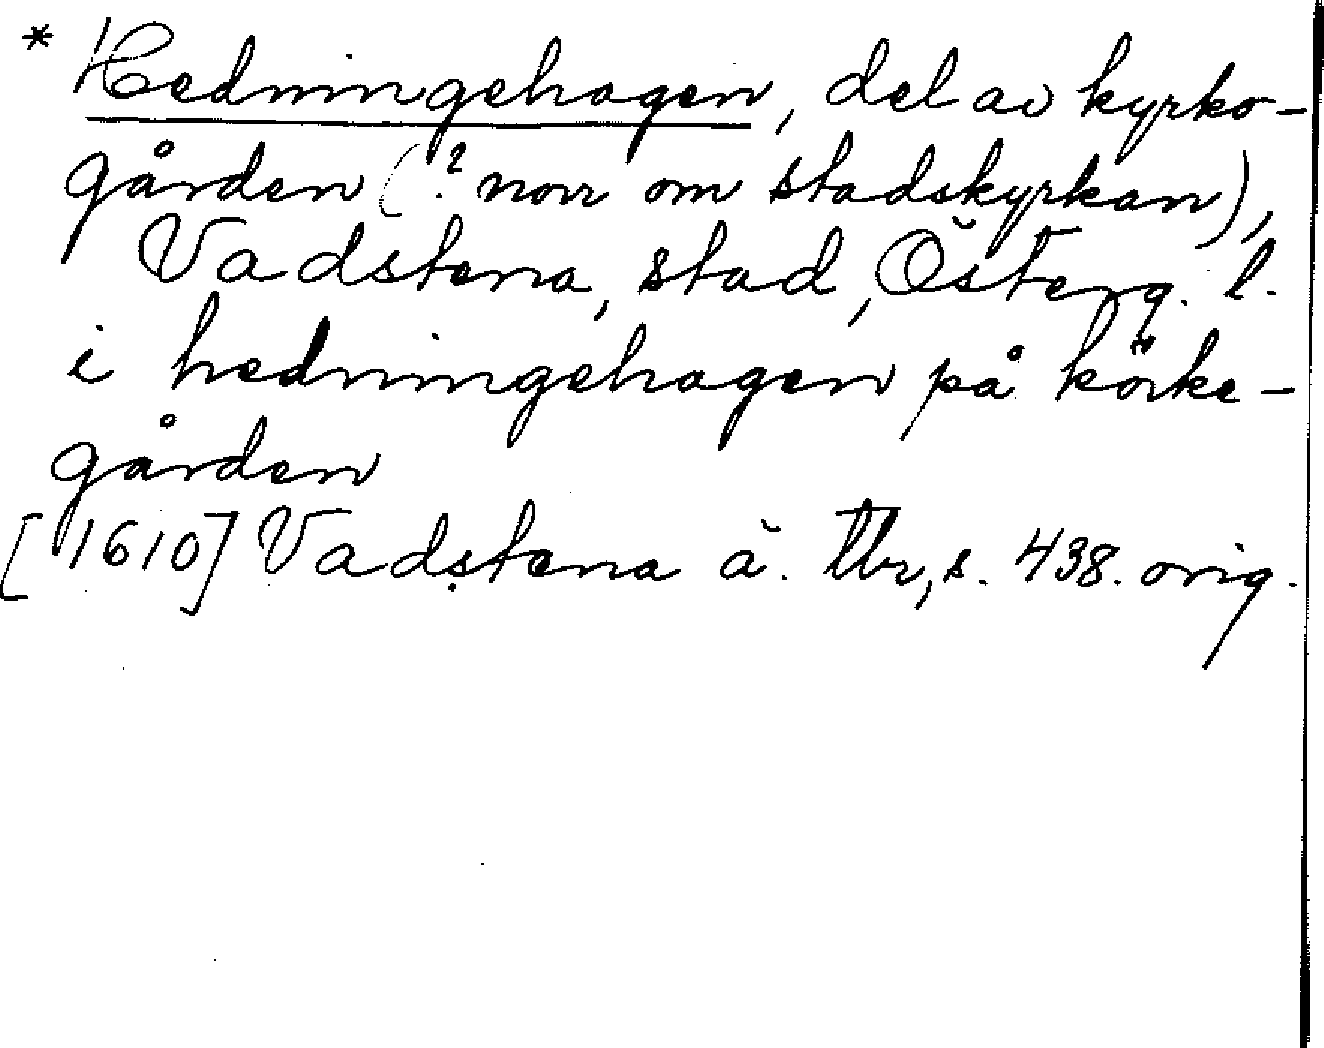 * Hedningehagen, del av kyrko-
gården (? norr om stadskyrkan),
Vadstena, stad, Österg. l.
i hedningehagen på körke-
gården
[1610] Vadstena ä. tbr, s. 438. orig.